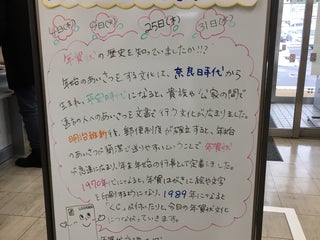 4日(木) 9日(木) 25日(木) 31日(水)
年賀状の歴史を知っていましたか!!?
年始のあいさつをする文化は、奈良時代から
生まれ、平安時代になると、貴族や公家の間で
遠方の人へのあいさつを文書で行う文化が広まりました。
明治維新後、郵便制度が確立すると、年始
のあいさつが簡潔で送りやすいということで年賀状
が急速に広まり、年末年始の行事として定着しました。
1970年代になると、年賀はがきに絵や文字
を印刷するようになり、1989年になると
「くじ」が付いたりと、今日の年賀状文化
につながっていきます。